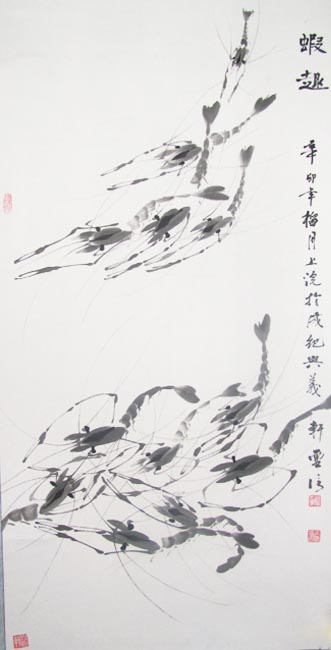 蝦趣
辛卯年梅月上浣於成紀興義軒